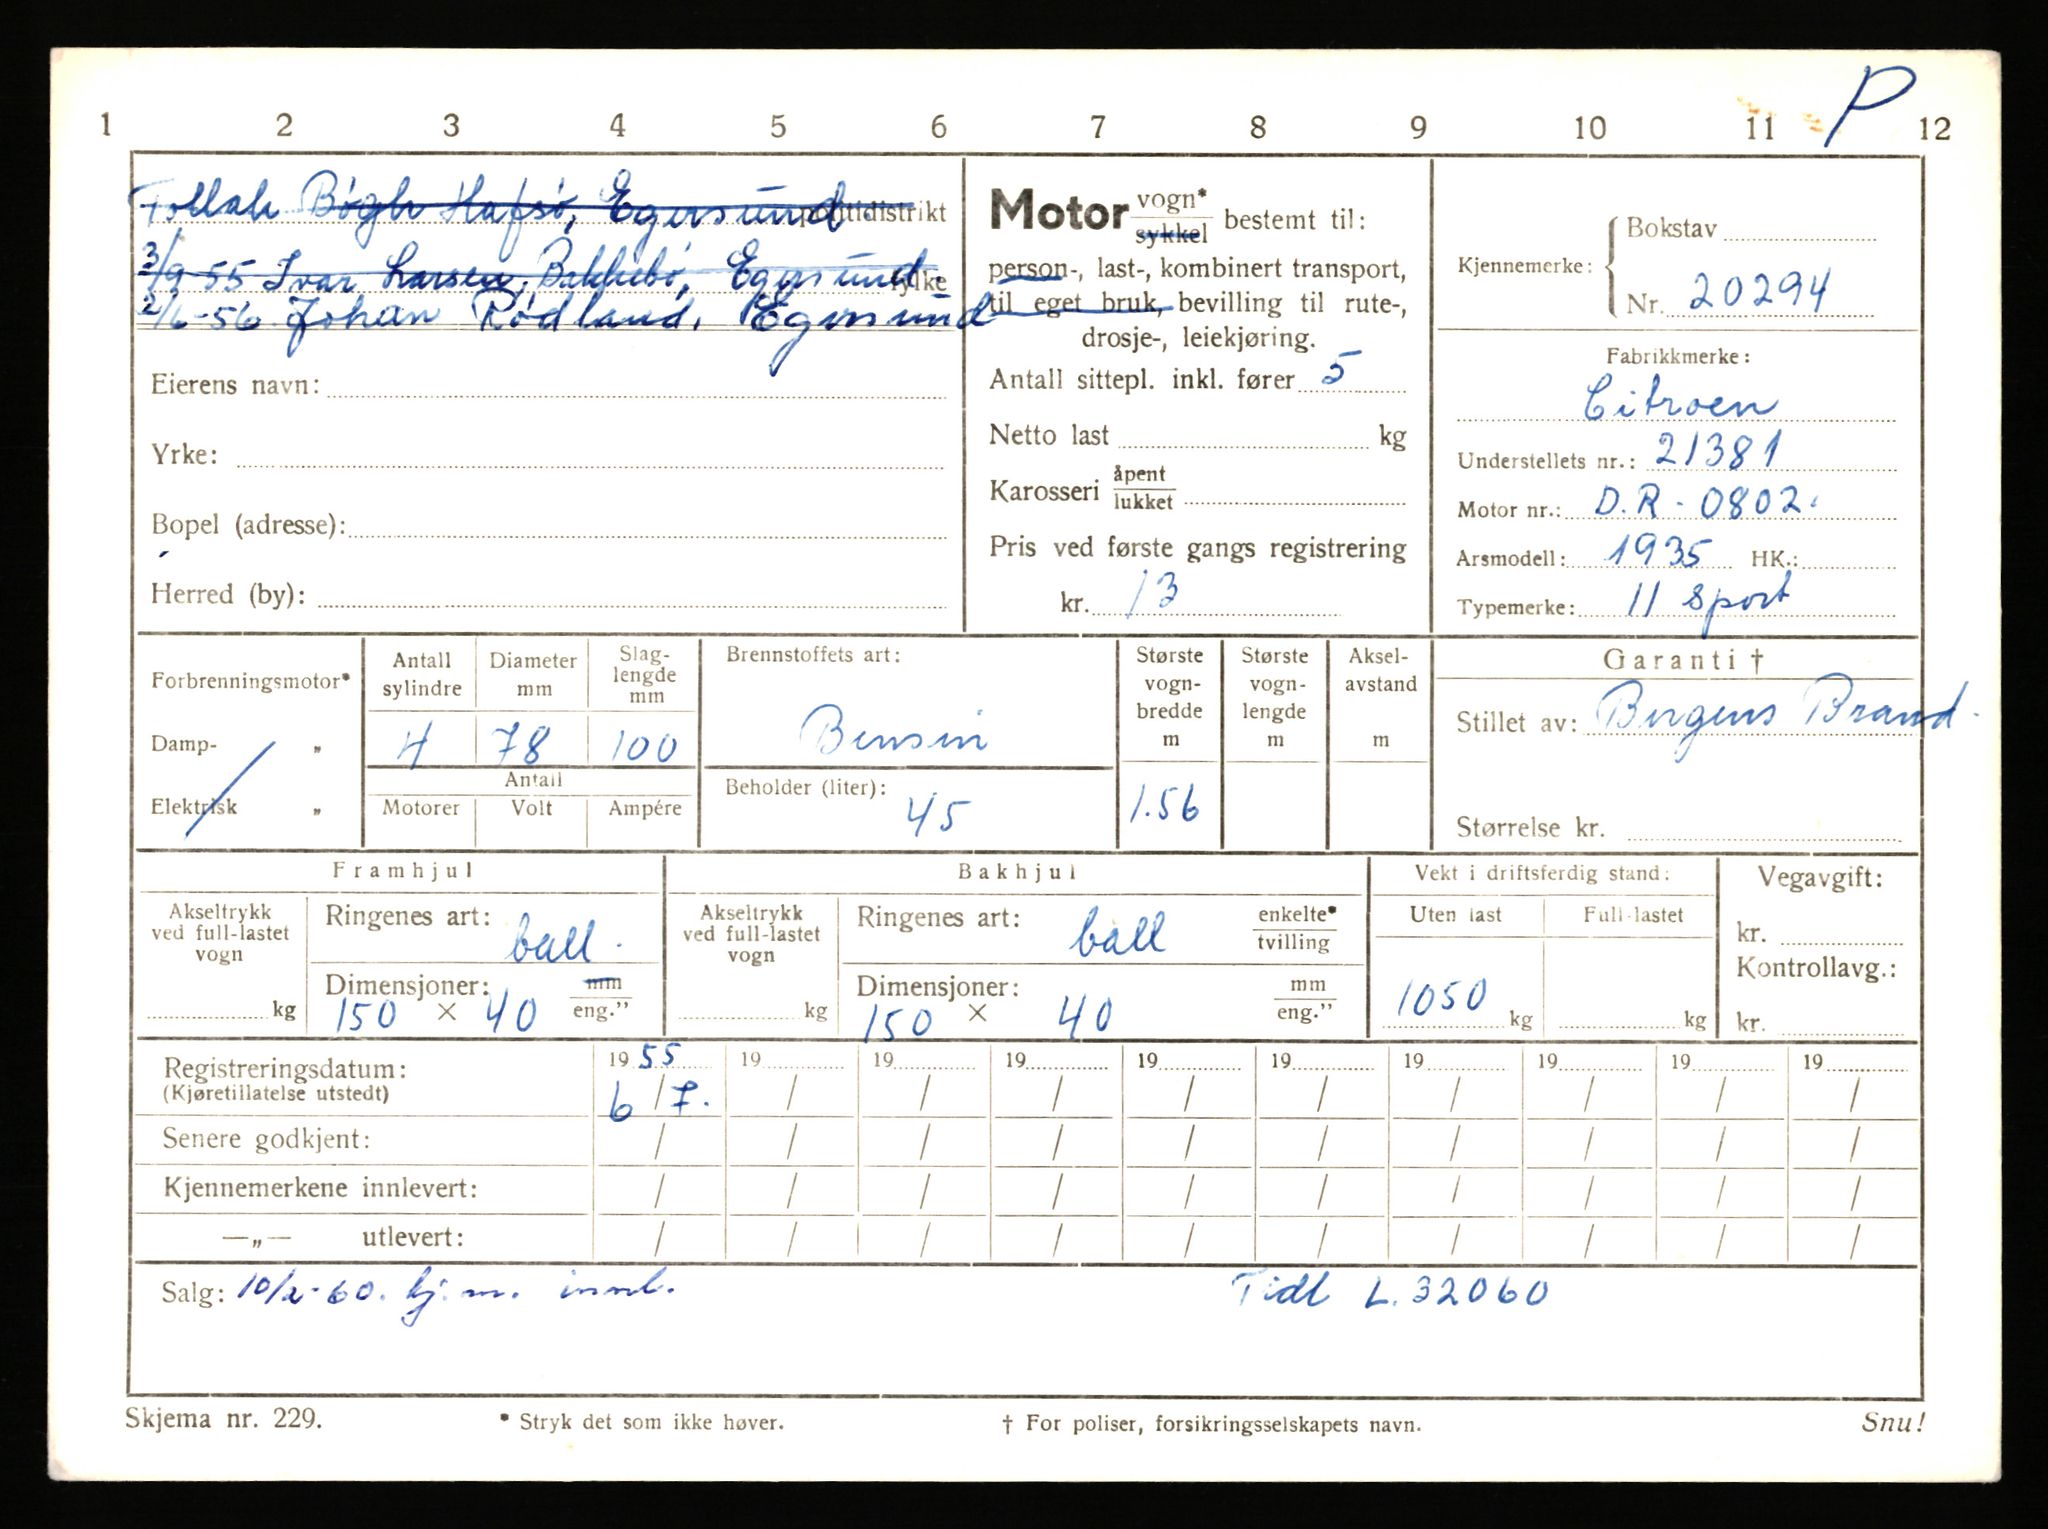 P
1 2 3 4 5 6 7 8 9 10 11 12
Tollak Bøgh Hafsø, Egersund. politidistrikt
3/9-55 Ivar Larsen, Bakkebø, Egersund. fylke
2/6-56. Johan Rødland, Egersund
Eierens navn:
Yrke:
Bopel (adresse):
Herred (by):
Motor vogn* / sykkel bestemt til:
person-, last-, kombinert transport,
til eget bruk, bevilling til rute-,
drosje-, leiekjøring.
Antall sittepl. inkl. fører 5
Netto last kg
Karosseri åpent / lukket
Pris ved første gangs registrering
kr. 13
Kjennemerke: Bokstav
Nr. 20294
Fabrikkmerke:
Citroen
Understellets nr.: 21381
Motor nr.: D.R - 0802.
Arsmodell: 1935 HK.:
Typemerke: 11 sport
Forbrenningsmotor*
Damp- „
Elektrisk „
Antall sylindre
Diameter mm
Slag-lengde mm
4 78 100
Antall
Motorer Volt Ampére
Brennstoffets art:
Bensin
Beholder (liter):
45
Største vogn-bredde m
1.56
Største vogn-lengde m
Aksel-avstand m
Garanti †
Stillet av: Bergens Brand.
Størrelse kr.
Framhjul
Akseltrykk
ved full-lastet
vogn
kg
Ringenes art: ball.
Dimensjoner: mm
150 × 40 eng."
Bakhjul
Akseltrykk
ved full-lastet
vogn
kg
Ringenes art: ball enkelte* / tvilling
Dimensjoner: mm
150 × 40 eng."
Vekt i driftsferdig stand:
Uten last Full-lastet
1050 kg kg
Vegavgift:
kr.
Kontrollavg.:
kr.
Registreringsdatum: 19 55 19 19 19 19 19 19 19 19 19
(Kjøretillatelse utstedt) 6 / 7. / / / / / / / / /
Senere godkjent: / / / / / / / / / /
Kjennemerkene innlevert: / / / / / / / / / /
—„— utlevert: / / / / / / / / / /
Salg: 10/2-60. kj.m. innl. Tidl L. 32060
Skjema nr. 229. * Stryk det som ikke høver. † For poliser, forsikringsselskapets navn. Snu!